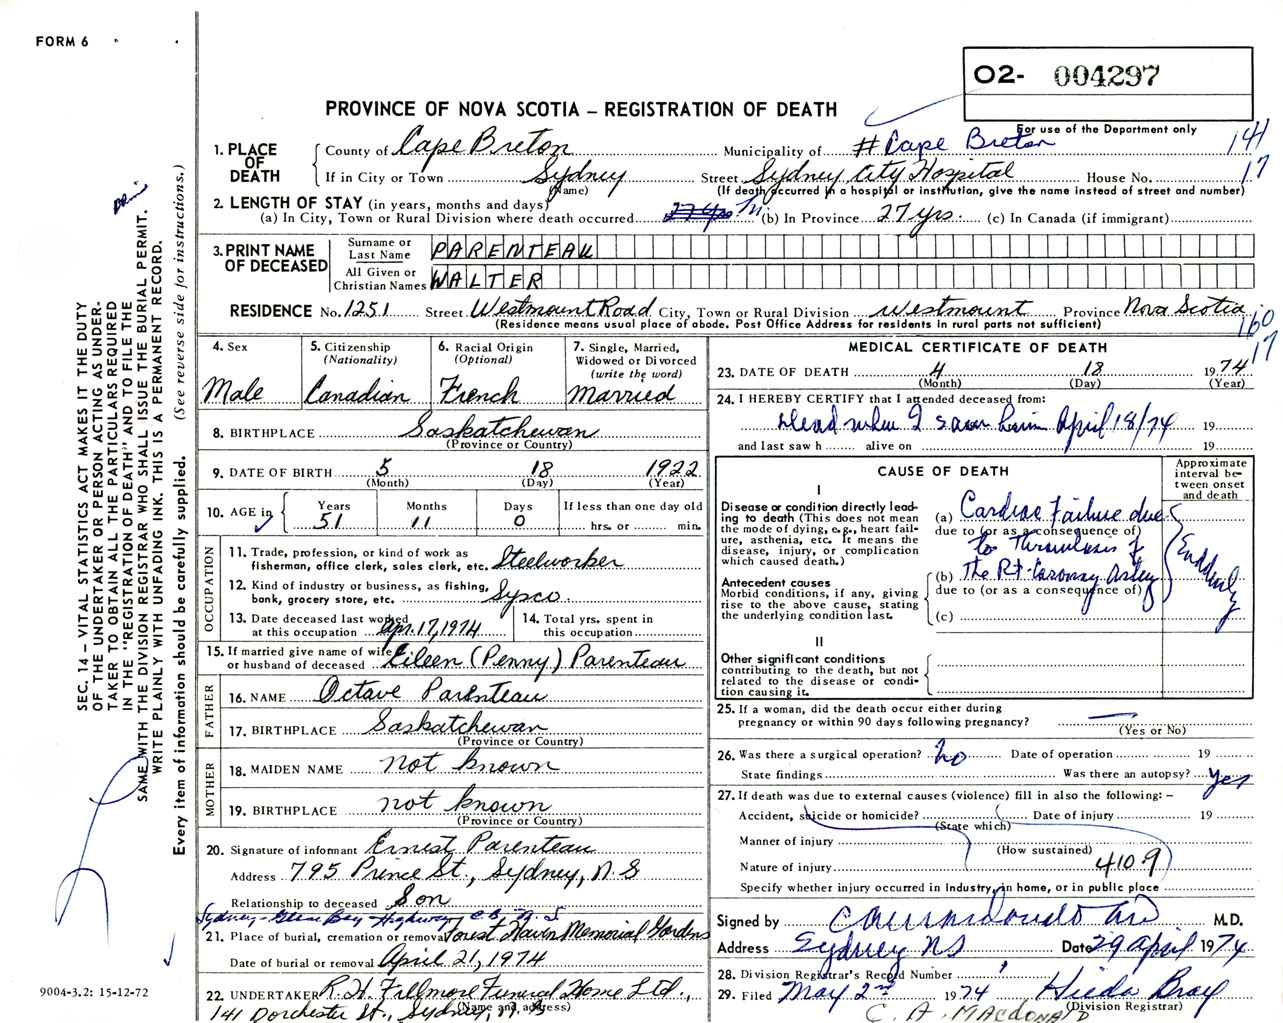 FORM 6
O2- 004297
PROVINCE OF NOVA SCOTIA – REGISTRATION OF DEATH
For use of the Department only
1. PLACE OF DEATH
County of Cape Breton Municipality of # Cape Breton 141
If in City or Town Sydney Street Sydney City Hospital House No. 17
(Name) (If death occurred in a hospital or institution, give the name instead of street and number)
2. LENGTH OF STAY (in years, months and days)
(a) In City, Town or Rural Division where death occurred 27 yrs (b) In Province 27 yrs. (c) In Canada (if immigrant)
3. PRINT NAME OF DECEASED
Surname or Last Name PARENTEAU
All Given or Christian Names WALTER
RESIDENCE No. 1251 Street Westmount Road City, Town or Rural Division Westmount Province Nova Scotia
(Residence means usual place of abode. Post Office Address for residents in rural parts not sufficient) 160
17
4. Sex
Male
5. Citizenship (Nationality)
Canadian
6. Racial Origin (Optional)
French
7. Single, Married, Widowed or Divorced (write the word)
Married
8. BIRTHPLACE Saskatchewan
(Province or Country)
9. DATE OF BIRTH 5 18 1922
(Month) (Day) (Year)
10. AGE in Years Months Days If less than one day old
51 11 0 hrs. or min.
OCCUPATION
11. Trade, profession, or kind of work as fisherman, office clerk, sales clerk, etc. Steelworker
12. Kind of industry or business, as fishing, bank, grocery store, etc. Sysco.
13. Date deceased last worked at this occupation Apr. 17, 1974
14. Total yrs. spent in this occupation
15. If married give name of wife or husband of deceased Eileen (Penny) Parenteau
FATHER
16. NAME Octave Parenteau
17. BIRTHPLACE Saskatchewan
(Province or Country)
MOTHER
18. MAIDEN NAME not known
19. BIRTHPLACE not known
(Province or Country)
20. Signature of informant Ernest Parenteau
Address 795 Prince St., Sydney, N.S
Relationship to deceased Son
Sydney-Glace Bay Highway C.B. N.S
21. Place of burial, cremation or removal Forest Haven Memorial Gardens
Date of burial or removal April 21, 1974
22. UNDERTAKER R. H. Fillmore Funeral Home Ltd.,
(Name and address)
141 Dorchester St., Sydney, N.S
MEDICAL CERTIFICATE OF DEATH
23. DATE OF DEATH 4 18 1974
(Month) (Day) (Year)
24. I HEREBY CERTIFY that I attended deceased from:
Dead when I saw him April 18/74 19
and last saw h alive on 19
CAUSE OF DEATH
Approximate interval between onset and death
I
Disease or condition directly leading to death (This does not mean the mode of dying, e.g., heart failure, asthenia, etc. It means the disease, injury, or complication which caused death.)
(a) Cardiac Failure due
due to (or as a consequence of)
to Thrombosis of
Antecedent causes
Morbid conditions, if any, giving rise to the above cause, stating the underlying condition last.
(b) The Rt. Coronary Artery
due to (or as a consequence of)
(c)
Suddenly
II
Other significant conditions
contributing to the death, but not related to the disease or condition causing it.
25. If a woman, did the death occur either during pregnancy or within 90 days following pregnancy? —
(Yes or No)
26. Was there a surgical operation? No Date of operation 19
State findings Was there an autopsy? Yes
27. If death was due to external causes (violence) fill in also the following: –
Accident, suicide or homicide? Date of injury 19
(State which)
Manner of injury
(How sustained)
Nature of injury 410.9
Specify whether injury occurred in industry, in home, or in public place
Signed by M.D.
Address Sydney NS Date 29 April 1974
28. Division Registrar's Record Number
29. Filed May 2nd 1974 Hilda Bray
(Division Registrar)
C. A. MacDonald
SEC. 14 – VITAL STATISTICS ACT MAKES IT THE DUTY
OF THE UNDERTAKER OR PERSON ACTING AS UNDER-
TAKER TO OBTAIN ALL THE PARTICULARS REQUIRED
IN THE "REGISTRATION OF DEATH" AND TO FILE THE
SAME WITH THE DIVISION REGISTRAR WHO SHALL ISSUE THE BURIAL PERMIT.
WRITE PLAINLY WITH UNFADING INK. THIS IS A PERMANENT RECORD.
Every item of information should be carefully supplied. (See reverse side for instructions.)
9004-3.2: 15-12-72